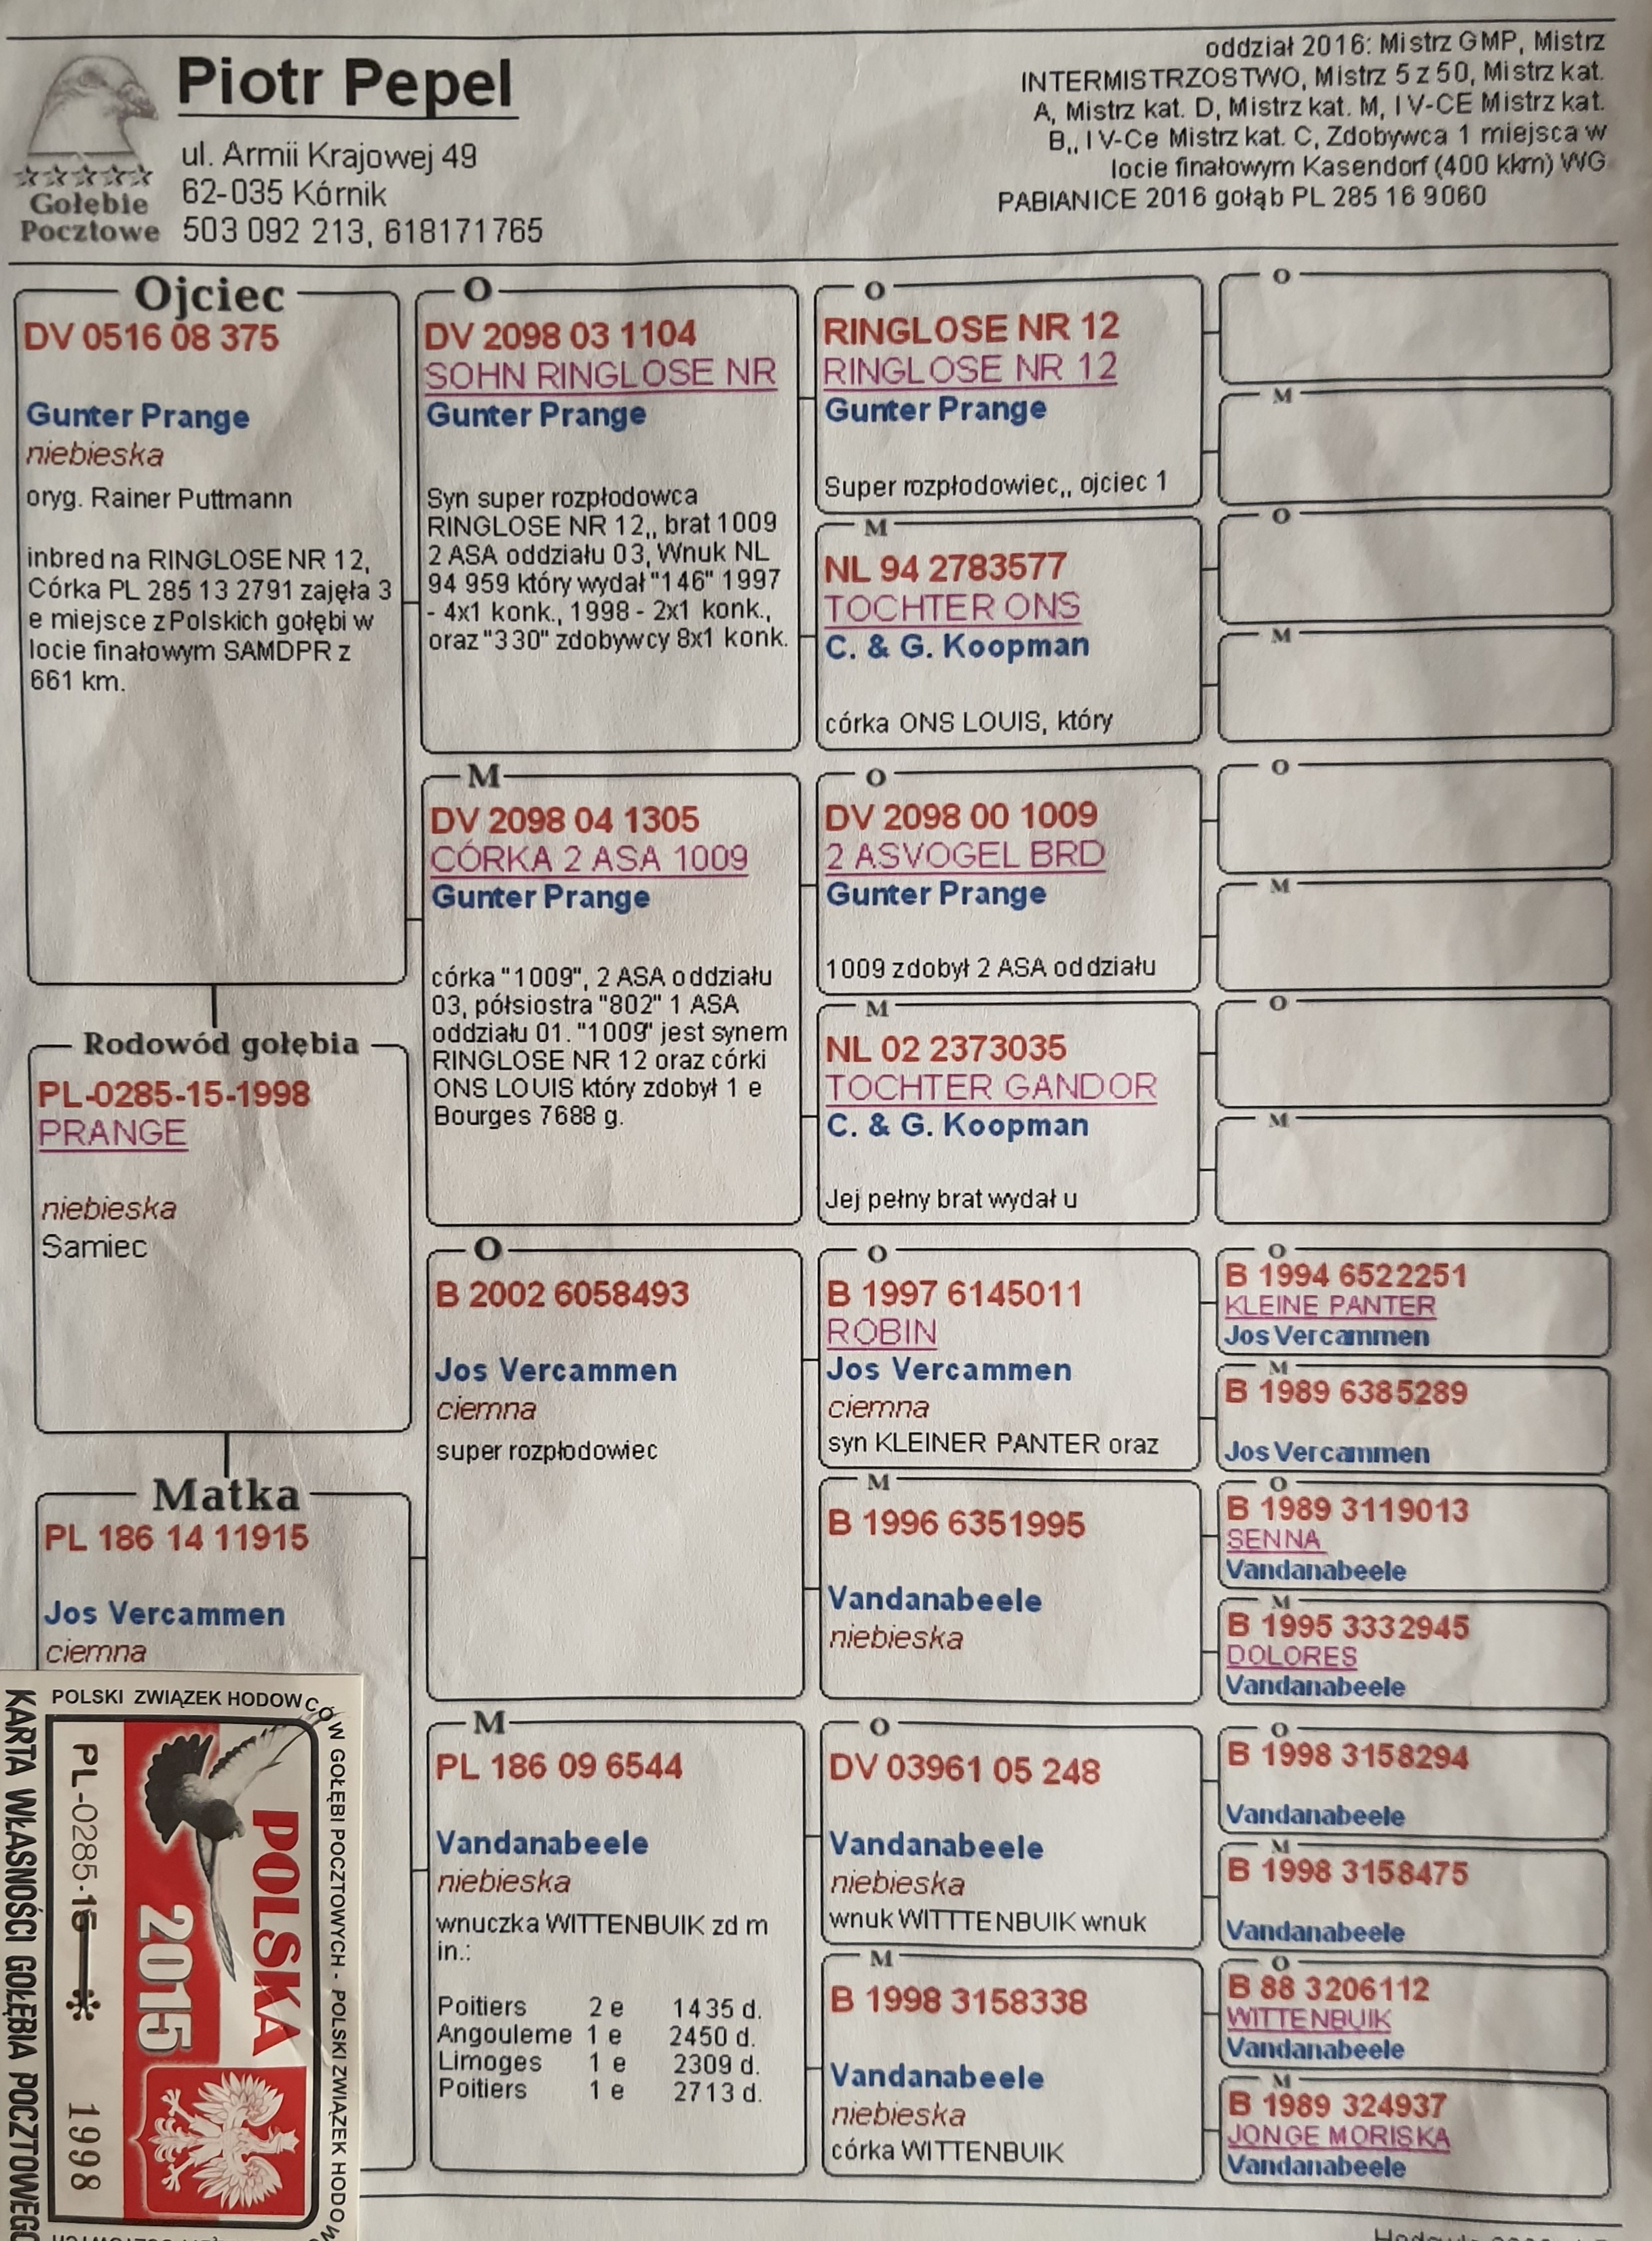 Piotr Pepel
ul. Armii Krajowej 49
62-035 Kórnik
503 092 213, 618171765
Gołębie
Pocztowe
oddział 2016: Mistrz GMP, Mistrz
INTERMISTRZOSTWO, Mistrz 5 z 50, Mistrz kat.
A, Mistrz kat. D, Mistrz kat. M, I V-CE Mistrz kat.
B,, I V-Ce Mistrz kat. C, Zdobywca 1 miejsca w
locie finałowym Kasendorf (400 kkm) WG
PABIANICE 2016 gołąb PL 285 16 9060
Ojciec
DV 0516 08 375
Gunter Prange
niebieska
oryg. Rainer Puttmann
inbred na RINGLOSE NR 12,
Córka PL 285 13 2791 zajęła 3
e miejsce z Polskich gołębi w
locie finałowym SAMDPR z
661 km.
Rodowód gołębia
PL-0285-15-1998
PRANGE
niebieska
Samiec
Matka
PL 186 14 11915
Jos Vercammen
ciemna
O
DV 2098 03 1104
SOHN RINGLOSE NR
Gunter Prange
Syn super rozpłodowca
RINGLOSE NR 12,, brat 1009
2 ASA oddziału 03, Wnuk NL
94 959 który wydał "146" 1997
- 4x1 konk., 1998 - 2x1 konk.,
oraz "330" zdobywcy 8x1 konk.
M
DV 2098 04 1305
CÓRKA 2 ASA 1009
Gunter Prange
córka "1009", 2 ASA oddziału
03, półsiostra "802" 1 ASA
oddziału 01. "1009" jest synem
RINGLOSE NR 12 oraz córki
ONS LOUIS który zdobył 1 e
Bourges 7688 g.
O
B 2002 6058493
Jos Vercammen
ciemna
super rozpłodowiec
M
PL 186 09 6544
Vandanabeele
niebieska
wnuczka WITTENBUIK zd m
in.:
Poitiers 2 e 1435 d.
Angouleme 1 e 2450 d.
Limoges 1 e 2309 d.
Poitiers 1 e 2713 d.
O
RINGLOSE NR 12
RINGLOSE NR 12
Gunter Prange
Super rozpłodowiec,, ojciec 1
M
NL 94 2783577
TOCHTER ONS
C. & G. Koopman
córka ONS LOUIS, który
O
DV 2098 00 1009
2 ASVOGEL BRD
Gunter Prange
1009 zdobył 2 ASA oddziału
M
NL 02 2373035
TOCHTER GANDOR
C. & G. Koopman
Jej pełny brat wydał u
O
B 1997 6145011
ROBIN
Jos Vercammen
ciemna
syn KLEINER PANTER oraz
M
B 1996 6351995
Vandanabeele
niebieska
O
DV 03961 05 248
Vandanabeele
niebieska
wnuk WITTTENBUIK wnuk
M
B 1998 3158338
Vandanabeele
niebieska
córka WITTENBUIK
O
M
O
M
O
M
O
M
O
B 1994 6522251
KLEINE PANTER
Jos Vercammen
M
B 1989 6385289
Jos Vercammen
O
B 1989 3119013
SENNA
Vandanabeele
M
B 1995 3332945
DOLORES
Vandanabeele
O
B 1998 3158294
Vandanabeele
M
B 1998 3158475
Vandanabeele
O
B 88 3206112
WITTENBUIK
Vandanabeele
M
B 1989 324937
JONGE MORISKA
Vandanabeele
POLSKI ZWIĄZEK HODOWCÓW GOŁĘBI POCZTOWYCH - POLSKI ZWIĄZEK HODOW
KARTA WŁASNOŚCI GOŁĘBIA POCZTOWEGO
POLSKA
2015
PL-0285-15 1998